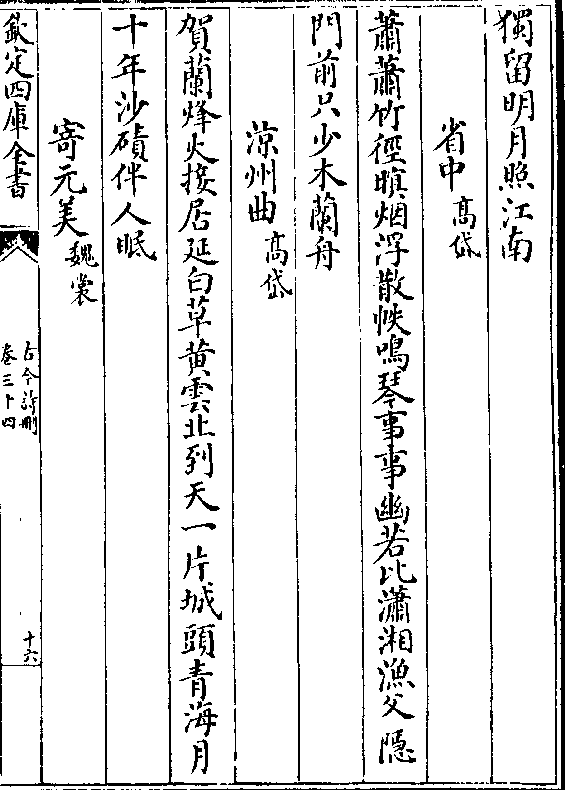 獨留明月照江南
省中 髙岱
蕭蕭竹徑暝烟浮散帙鳴琴事事幽若比瀟湘漁父隠
門前只少木蘭舟
涼州曲 髙岱
賀蘭烽火接居延白草黄雲北列天一片城頭青海月
十年沙磧伴人眠
寄元美 魏裳
欽定四庫全書
古今詩刪
卷三十四
十六